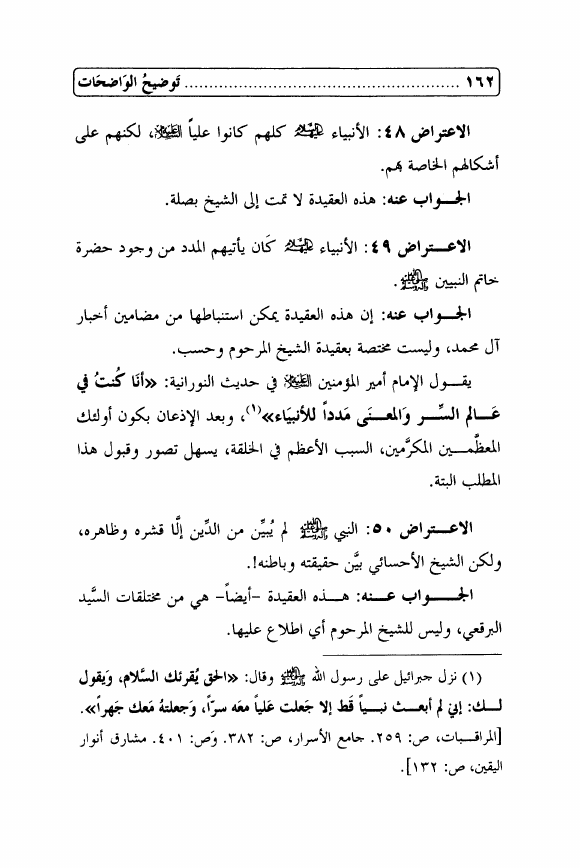 ١٦٢ ........................................................ تَوضيحُ الوَاضحَات
الاعتراض ٤٨: الأنبياء عليهم السلام كلهم كانوا علياً عليه السلام، لكنهم على
أشكالهم الخاصة بهم.
الجـواب عنه: هذه العقيدة لا تمت إلى الشيخ بصلة.
الاعـتراض ٤٩: الأنبياء عليهم السلام كَان يأتيهم المدد من وجود حضرة
خاتم النبيين ﷺ.
الجـواب عنه: إن هذه العقيدة يمكن استنباطها من مضامين أخبار
آل محمد، وليست مختصة بعقيدة الشيخ المرحوم وحسب.
يقـول الإمام أمير المؤمنين عليه السلام في حديث النورانية: «أنَا كُنتُ في
عَـالم السِّـر وَالمعـنَى مَدداً للأنبيَاء»(١)، وبعد الإذعان بكون أولئك
المعظَّمـين المكرَّمين، السبب الأعظم في الخلقة، يسهل تصور وقبول هذا
المطلب البتة.
الاعـتراض ٥٠: النبي ﷺ لم يُبيِّن من الدِّين إلَّا قشره وظاهره،
ولكن الشيخ الأحسائي بيَّن حقيقته وباطنه!.
الجـواب عـنه: هـذه العقيدة -أيضاً- هي من مختلقات السَّيد
البرقعي، وليس للشيخ المرحوم أي اطلاع عليها.
(١) نزل جبرائيل على رسول الله ﷺ وقال: «الحق يُقرئك السَّلام، وَيقول
لـك: إني لم أبعـث نبـياً قَط إلا جَعلت عَلياً معَه سرّاً، وَجَعلتهُ مَعك جَهراً».
[المراقـبات، ص: ٢٥٩. جامع الأسرار، ص: ٣٨٢. وَص: ٤٠١. مشارق أنوار
اليقين، ص: ١٣٢].